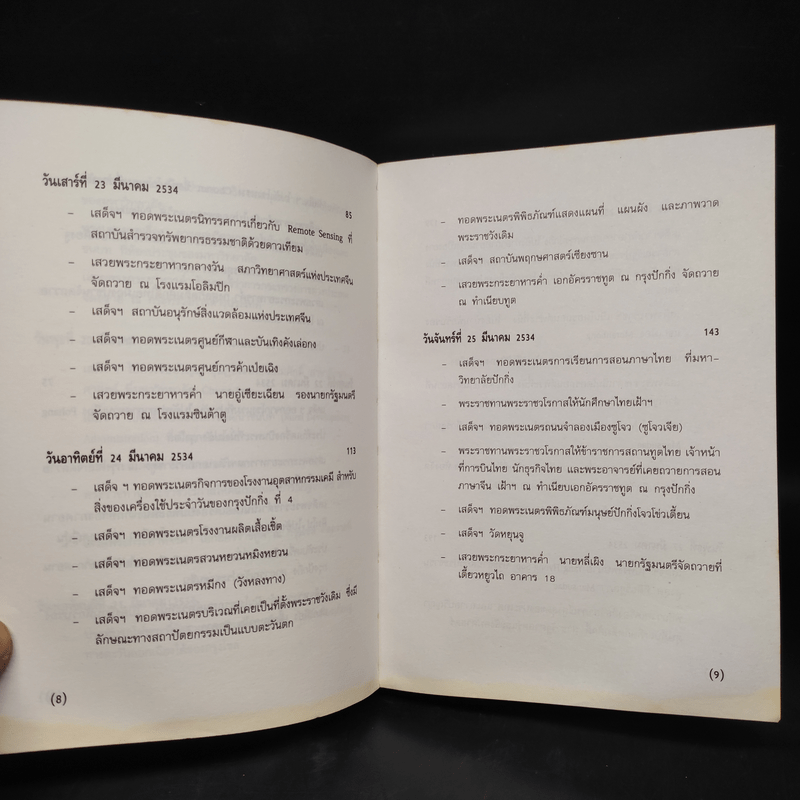 วันเสาร์ที่ 23 มีนาคม 2534
85
- เสด็จฯ ทอดพระเนตรนิทรรศการเกี่ยวกับ Remote Sensing ที่
สถาบันสำรวจทรัพยากรธรรมชาติด้วยดาวเทียม
- เสวยพระกระยาหารกลางวัน สภาวิทยาศาสตร์แห่งประเทศจีน
จัดถวาย ณ โรงแรมโอลิมปิก
- เสด็จฯ สถาบันอนุรักษ์สิ่งแวดล้อมแห่งประเทศจีน
- เสด็จฯ ทอดพระเนตรศูนย์กีฬาและบันเทิงคังเล่อกง
- เสด็จฯ ทอดพระเนตรศูนย์การค้าเปยเฉิง
- เสวยพระกระยาหารค่ำ นายอู๋เซียะเฉียน รองนายกรัฐมนตรี
จัดถวาย ณ โรงแรมซินต้าตู
วันอาทิตย์ที่ 24 มีนาคม 2534 113
- เสด็จ ฯ ทอดพระเนตรกิจการของโรงงานอุตสาหกรรมเคมี สำหรับ
สิ่งของเครื่องใช้ประจำวันของกรุงปักกิ่ง ที่ 4
- เสด็จฯ ทอดพระเนตรโรงงานผลิตเสื้อเชิ้ต
- เสด็จฯ ทอดพระเนตรสวนหยวนหมิงหยวน
- เสด็จฯ ทอดพระเนตรหมีกง (วังหลงทาง)
- เสด็จฯ ทอดพระเนตรบริเวณที่เคยเป็นที่ตั้งพระราชวังเดิม ซึ่งมี
ลักษณะทางสถาปัตยกรรมเป็นแบบตะวันตก
(8)
- ทอดพระเนตรพิพิธภัณฑ์แสดงแผนที่ แผนผัง และภาพวาด
พระราชวังเดิม
- เสด็จฯ สถาบันพฤกษศาสตร์เซียงซาน
- เสวยพระกระยาหารค่ำ เอกอัครราชทูต ณ กรุงปักกิ่ง จัดถวาย
ณ ทำเนียบทูต
วันจันทร์ที่ 25 มีนาคม 2534 143
- เสด็จฯ ทอดพระเนตรการเรียนการสอนภาษาไทย ที่มหา-
วิทยาลัยปักกิ่ง
- พระราชทานพระราชวโรกาสให้นักศึกษาไทยเฝ้าฯ
- เสด็จฯ ทอดพระเนตรถนนจำลองเมืองซูโจว (ซูโจวเจีย)
- พระราชทานพระราชวโรกาสให้ข้าราชการสถานทูตไทย เจ้าหน้า
ที่การบินไทย นักธุรกิจไทย และพระอาจารย์ที่เคยถวายการสอน
ภาษาจีน เฝ้าฯ ณ ทำเนียบเอกอัครราชทูต ณ กรุงปักกิ่ง
- เสด็จฯ ทอดพระเนตรพิพิธภัณฑ์มนุษย์ปักกิ่งโจวโข่วเตี้ยน
- เสด็จฯ วัดหยุนจู
- เสวยพระกระยาหารค่ำ นายหลี่เผิง นายกรัฐมนตรีจัดถวายที่
เตี้ยวหยูไถ อาคาร 18
(9)